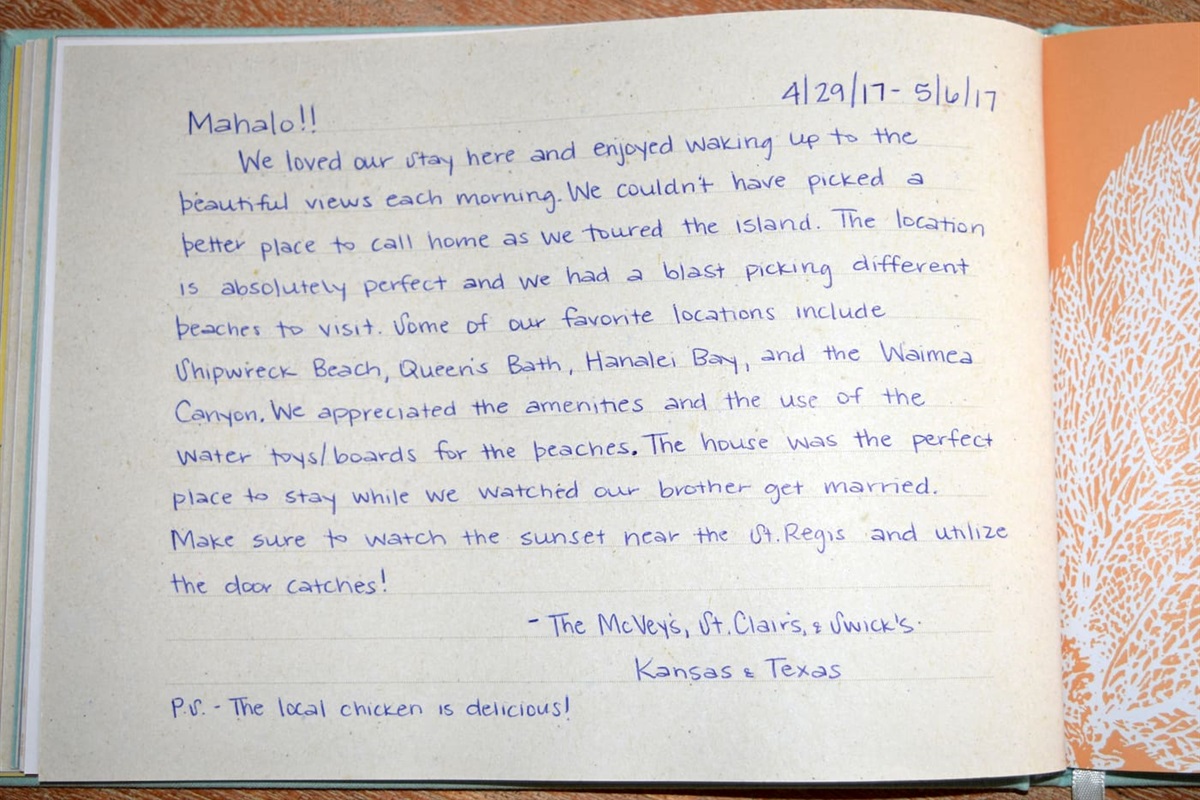 4/29/17 - 5/6/17
Mahalo!!
We loved our stay here and enjoyed waking up to the
beautiful views each morning. We couldn't have picked a
better place to call home as we toured the island. The location
is absolutely perfect and we had a blast picking different
beaches to visit. Some of our favorite locations include
Shipwreck Beach, Queen's Bath, Hanalei Bay, and the Waimea
Canyon. We appreciated the amenities and the use of the
water toys/boards for the beaches. The house was the perfect
place to stay while we watched our brother get married.
Make sure to watch the sunset near the St. Regis and utilize
the door catches!
- The McVey's, St. Clair's, & Swick's.
Kansas & Texas
P.S. - The local chicken is delicious!